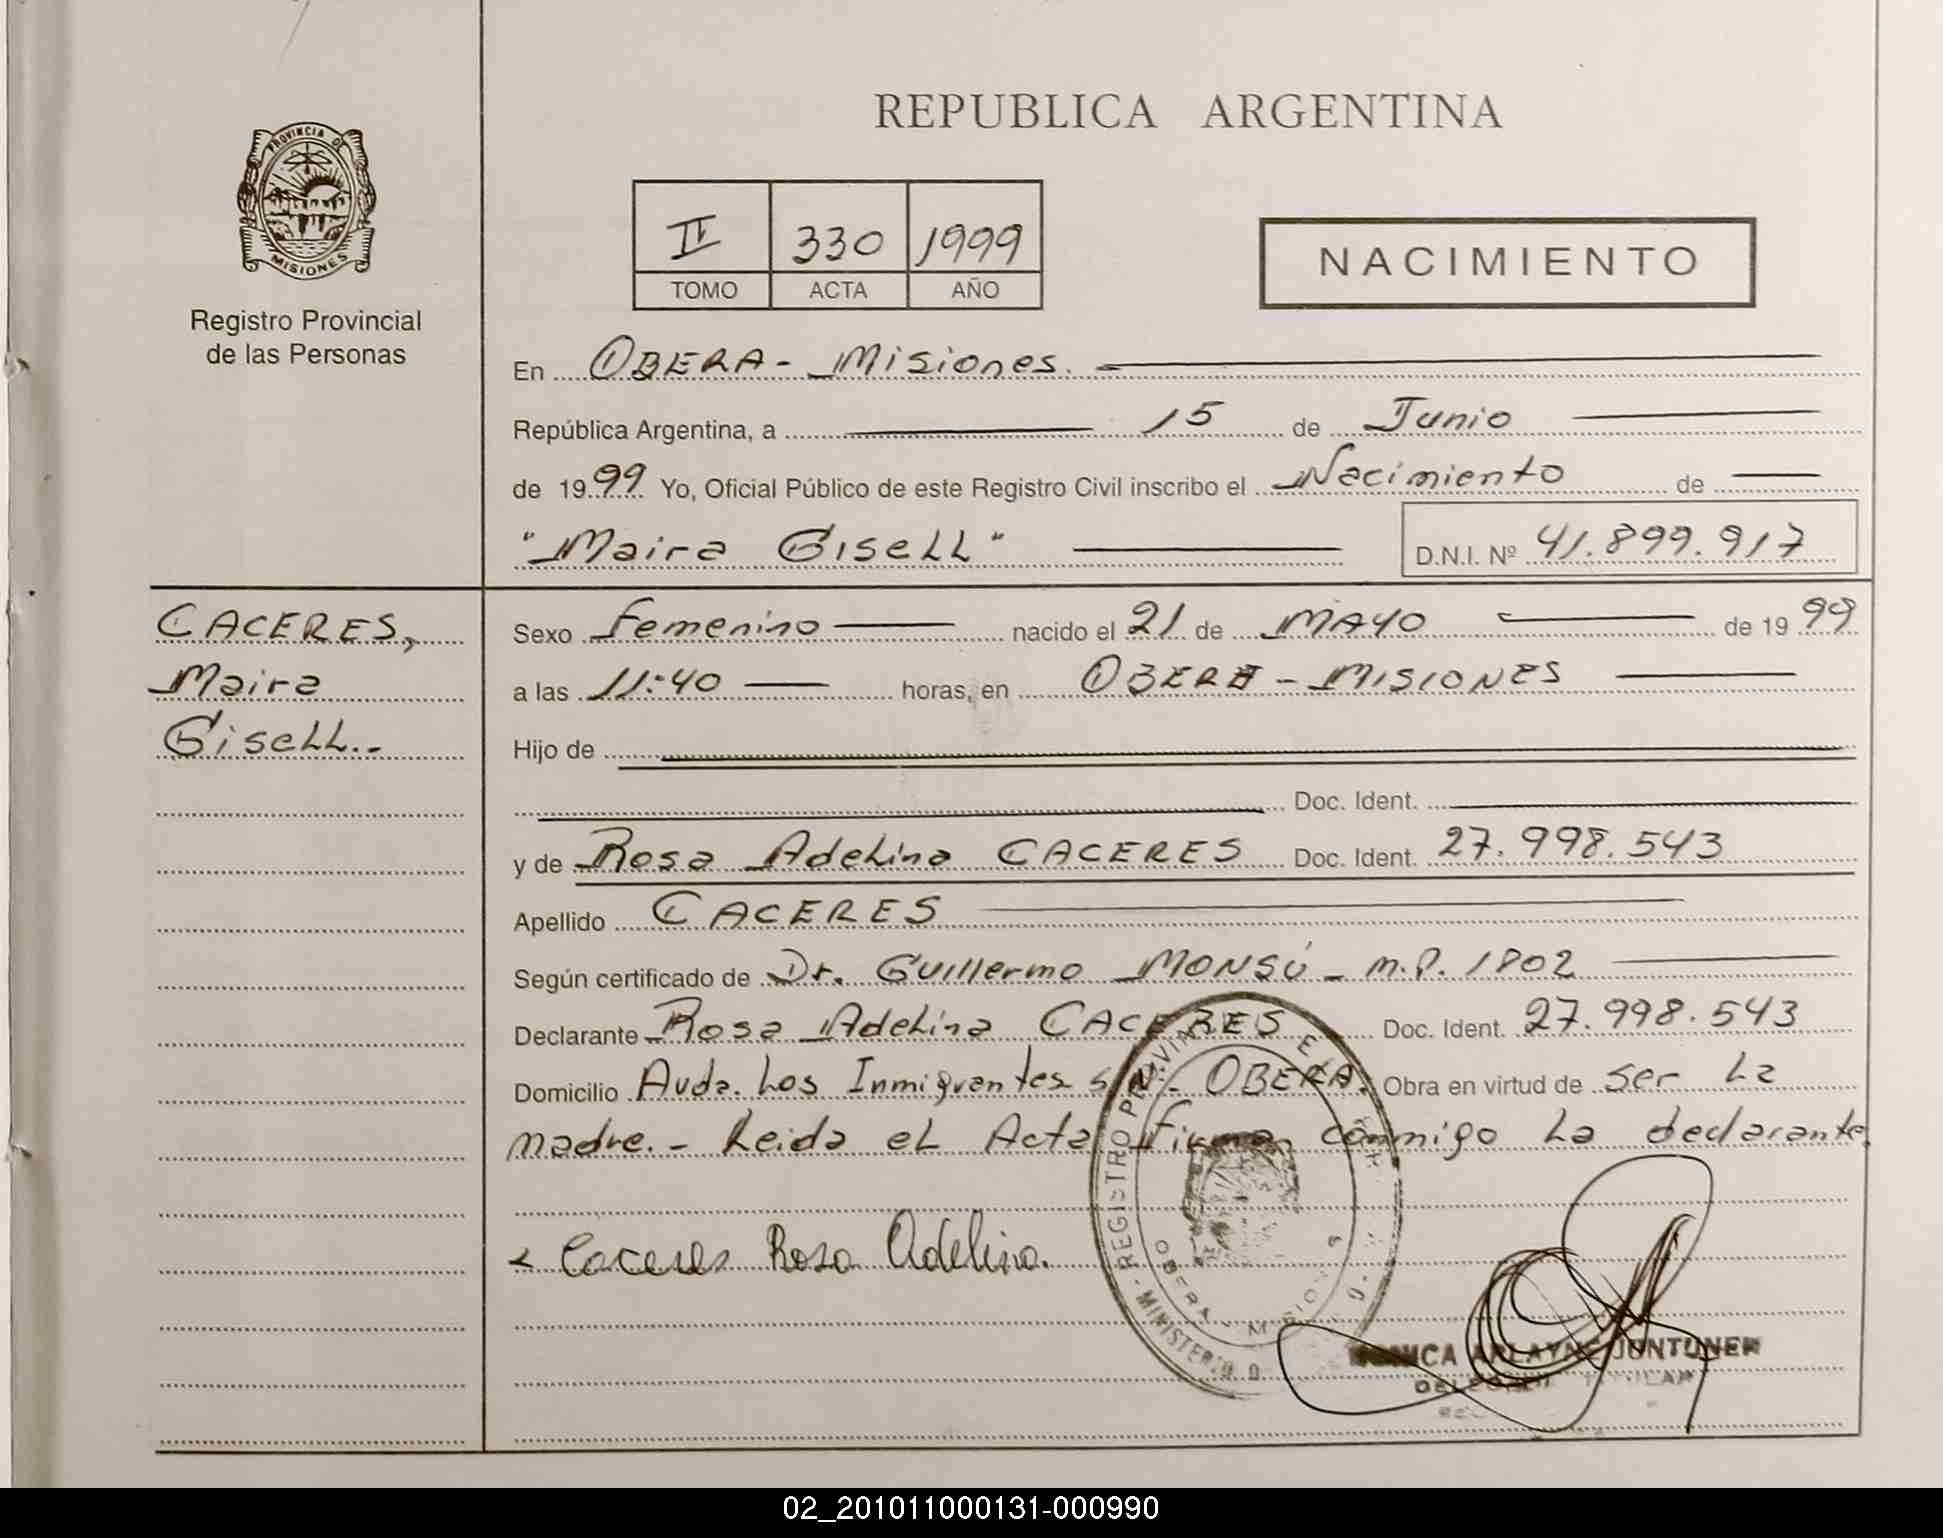 PROVINCIA DE
MISIONES
Registro Provincial
de las Personas
REPUBLICA ARGENTINA
II 330 1999
TOMO ACTA AÑO
NACIMIENTO
En OBERA - Misiones.
República Argentina, a 15 de Junio
de 1999 Yo, Oficial Público de este Registro Civil inscribo el Nacimiento de
"Maira Gisell" D.N.I. Nº 41.899.917
CACERES,
Maira
Gisell.-
Sexo Femenino nacido el 21 de MAYO de 1999
a las 11:40 horas, en OBERA - MISIONES
Hijo de
Doc. Ident.
y de Rosa Adelina CACERES Doc. Ident. 27.998.543
Apellido CACERES
Según certificado de Dr. Guillermo MONSÚ - M.P. 1802
Declarante Rosa Adelina CACERES Doc. Ident. 27.998.543
Domicilio Avda. Los Inmigrantes S/N. - OBERA. Obra en virtud de ser la
madre. - Leida el Acta firman conmigo la declarante.
Caceres Rosa Adelina.
REGISTRO
MINISTERIO D
OBERA - MISIONES
ARLAYNE
02_201011000131-000990